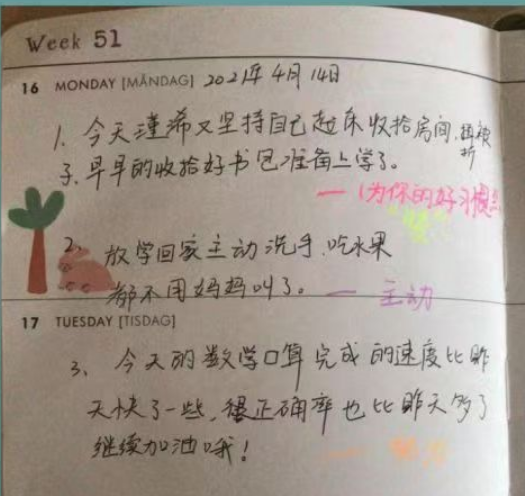 Week 51
16 MONDAY [MÅNDAG] 2021年4月14日
1. 今天瑾希又坚持自己起床收拾房间,叠被
子,早早的收拾好书包准备上学了。
— (为你的好习惯点
2、放学回家主动洗手、吃水果
都不用妈妈叫了。— 主动
17 TUESDAY [TISDAG]
3、今天的数学口算完成的速度比昨
天快了一些,正确率也比昨天多了
继续加油哦!